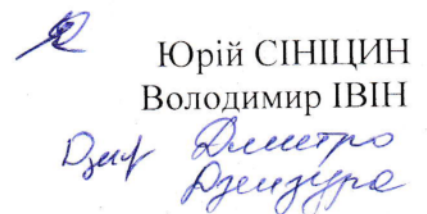 Юрій СІНІЦИН
Володимир ІВІН
Дмитро
Дзензура